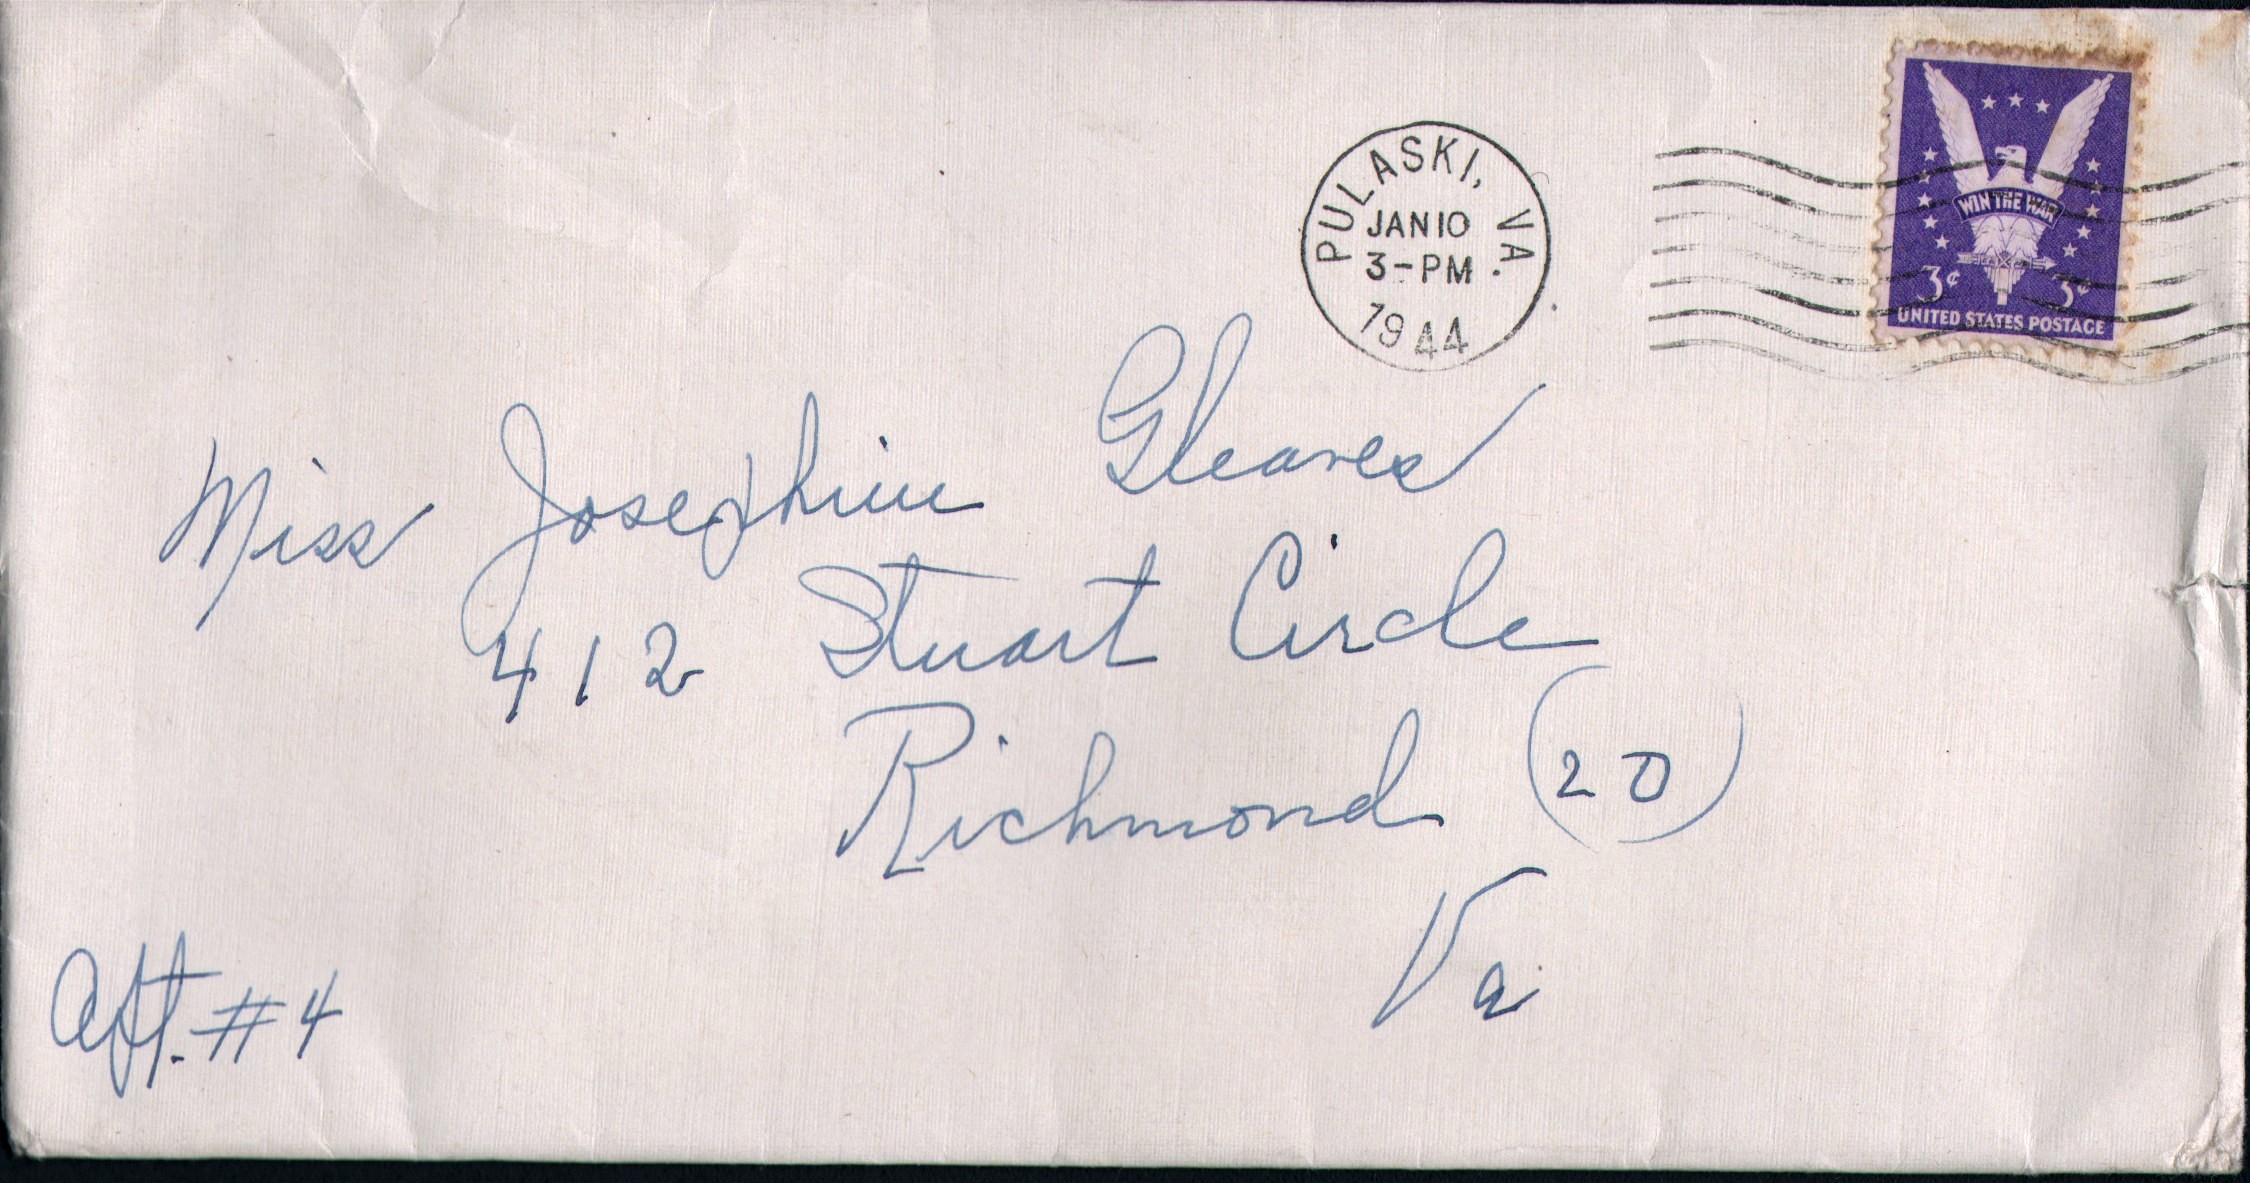 PULASKI, VA.
JAN 10
3-PM
1944
WIN THE WAR
3¢ 3¢
UNITED STATES POSTAGE
Miss Josephine Gleaves
412 Stuart Circle
Richmond (20)
Va
Apt. #4